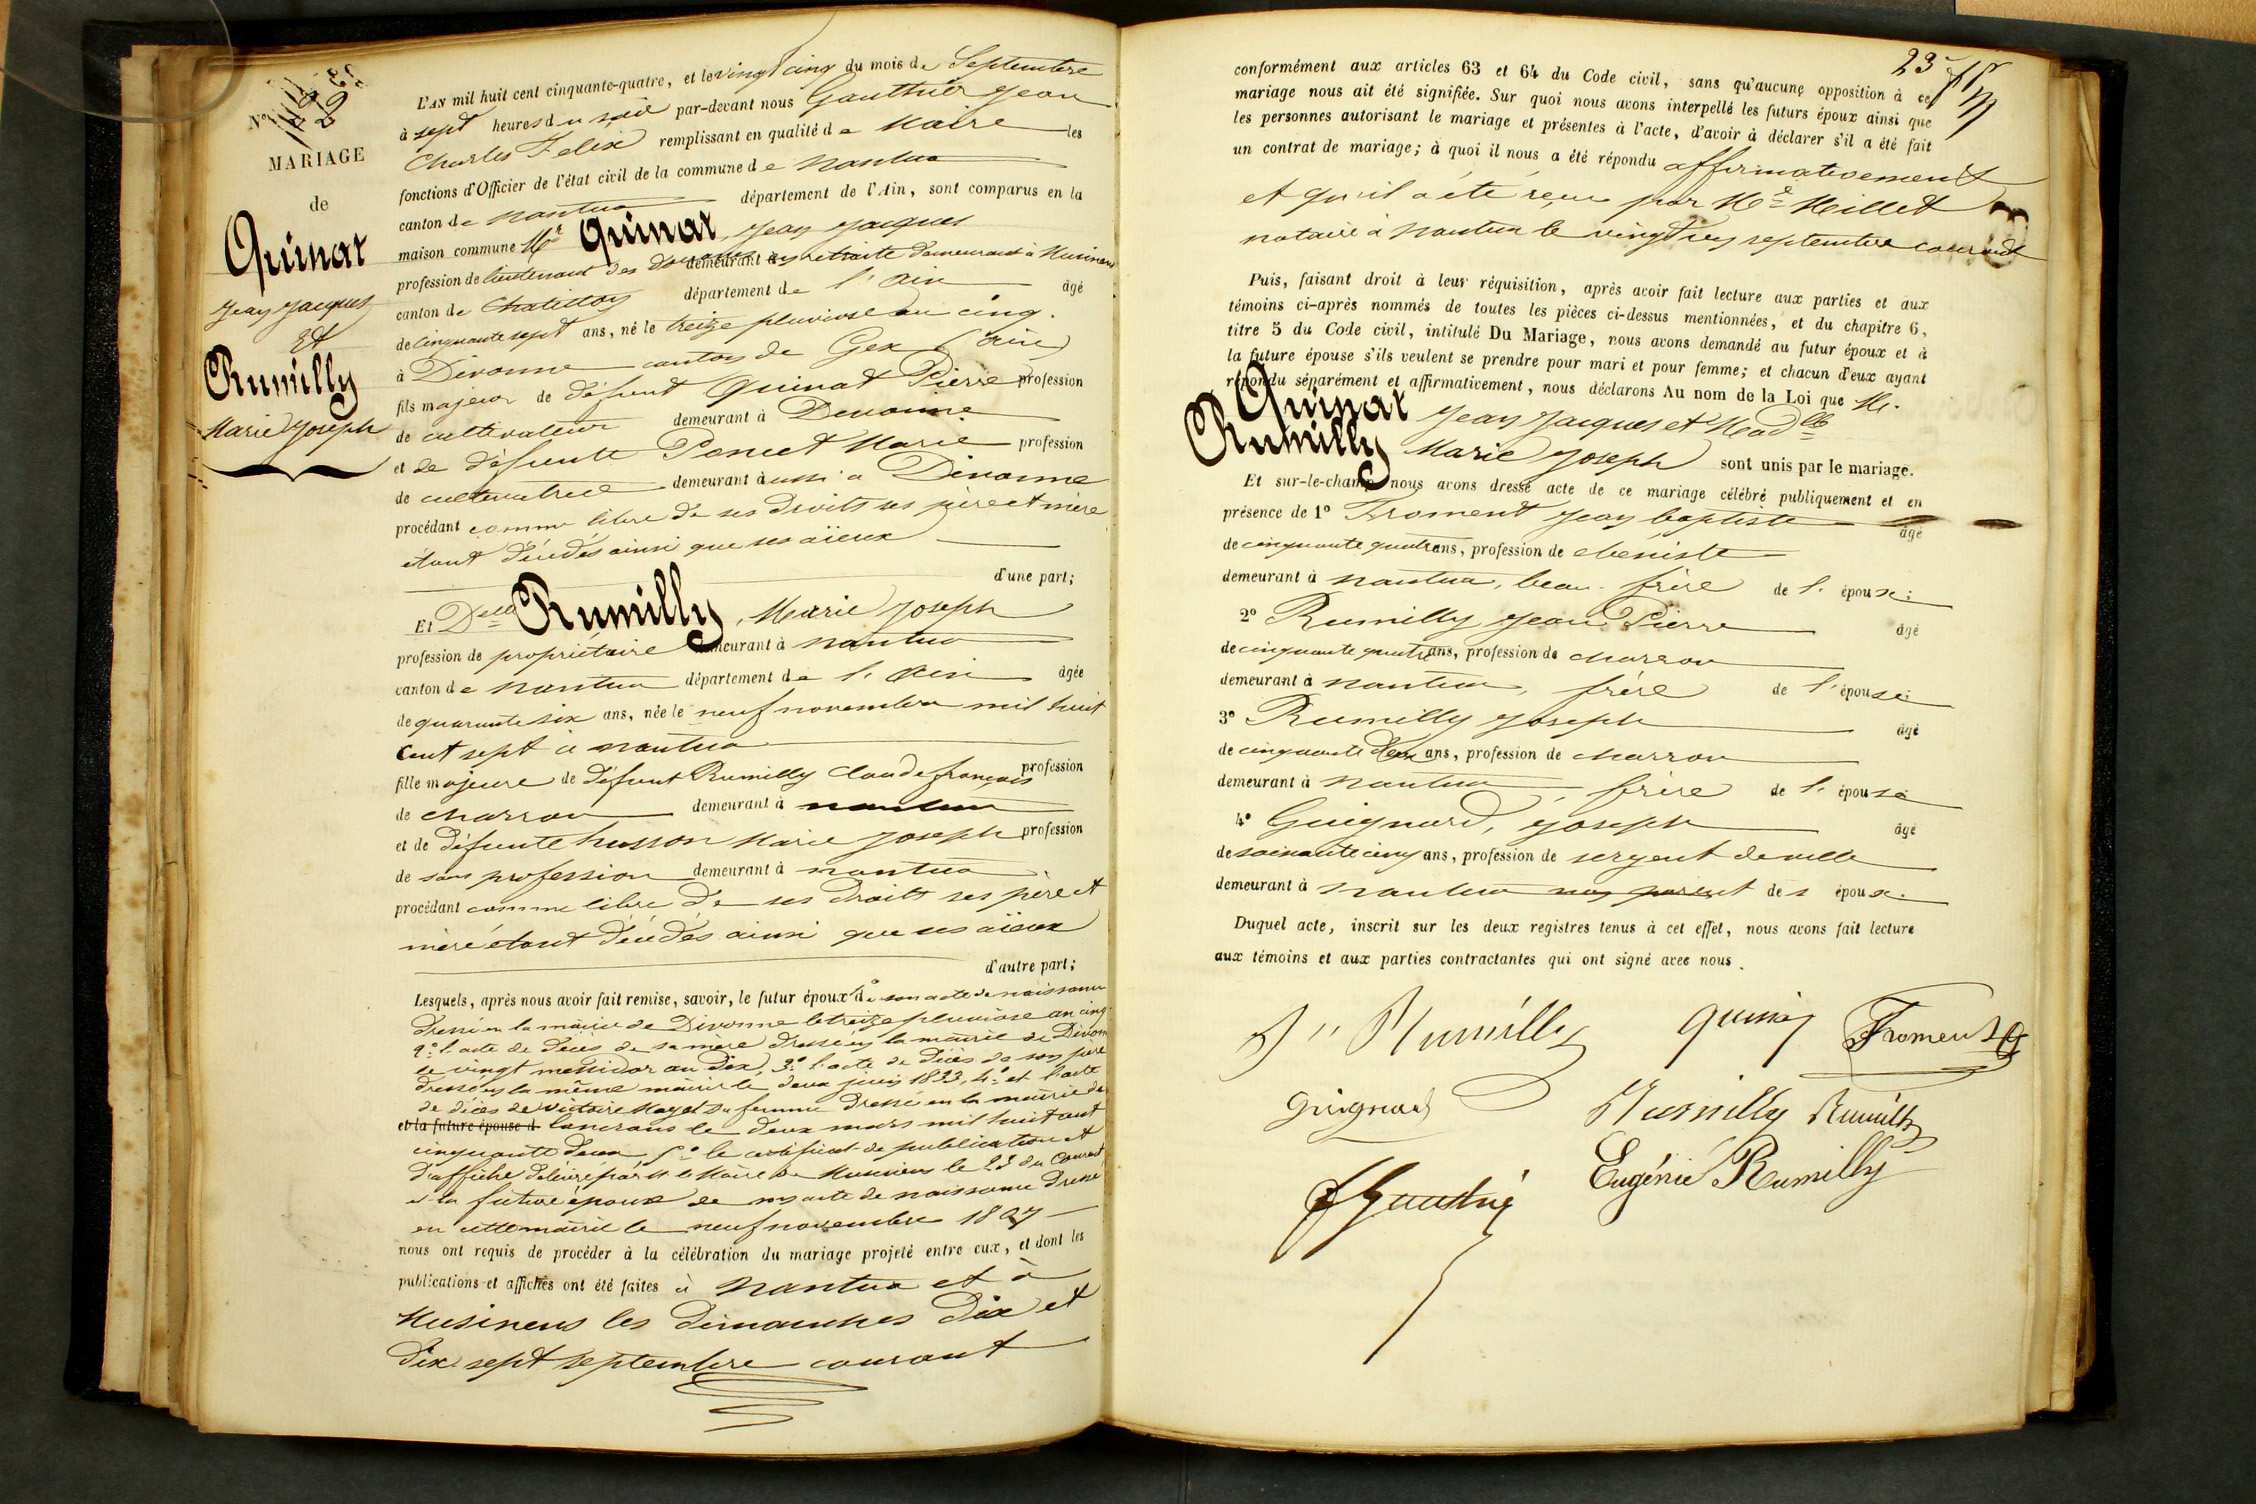 No 22
MARIAGE
de
Quinat
Jean Jacques
Et
Rumilly
Marie Joseph
L'AN mil huit cent cinquante-quatre, et le vingt cinq du mois de Septembre
à sept heures du soir par-devant nous Gauthier Jean
Charles Felix remplissant en qualité de Maire les
fonctions d'Officier de l'état civil de la commune de Nantua
canton de Nantua département de l'Ain, sont comparus en la
maison commune Mr Quinat, Jean Jacques
profession de lieutenant des douanes en retraite demeurant à Musinens
canton de Chatillon département de l'Ain âgé
de cinquante sept ans, né le treize pluviose an cinq.
à Divonne canton de Gex (Ain)
fils majeur de défunt Quinat Pierre profession
de cultivateur demeurant à Divonne
et de défunte Poncet Marie profession
de cultivatrice demeurant aussi à Divonne
procédant comme libre de ses droits ses père et mère
étant décédés ainsi que ses aïeux
d'une part;
Et Delle Rumilly, Marie Joseph
profession de propriétaire demeurant à Nantua
canton de Nantua département de l'Ain âgée
de quarante six ans, née le neuf novembre mil huit
cent sept à Nantua
fille majeure de défunt Rumilly Claude françois profession
de charron demeurant à Nantua
et de défunte husson Marie Joseph profession
de sans profession demeurant à Nantua
procédant comme libre de ses droits ses père et
mère étant décédés ainsi que ses aïeux
d'autre part;
Lesquels, après nous avoir fait remise, savoir, le futur époux 1o de son acte de naissance
dressé en la mairie de Divonne le treize pluviose an cinq
2o l'acte de décès de sa mère dressé en la mairie de Divonne
le vingt messidor an dix, 3o l'acte de décès de son père
dressé en la même mairie le deux juin 1833, 4o et l'acte
de décès de Victoire Mayet sa femme dressé en la mairie de
et la future épouse d lancrans le deux mars mil huit cent
cinquante deux 5o le certificat de publication et
d'affiche délivré par M le Maire de Musinens le 23 du courant
et la future épouse de son acte de naissance dressé
en cette mairie le neuf novembre 1807
nous ont requis de procéder à la célébration du mariage projeté entre eux, et dont les
publications et affiches ont été faites à Nantua et à
Musinens les dimanches dix et
dix sept septembre courant
23
conformément aux articles 63 et 64 du Code civil, sans qu'aucune opposition à ce
mariage nous ait été signifiée. Sur quoi nous avons interpellé les futurs époux ainsi que
les personnes autorisant le mariage et présentes à l'acte, d'avoir à déclarer s'il a été fait
un contrat de mariage; à quoi il nous a été répondu affirmativement
et qu'il a été reçu par Me Millet
notaire à Nantua le septembre courant
Puis, faisant droit à leur réquisition, après avoir fait lecture aux parties et aux
témoins ci-après nommés de toutes les pièces ci-dessus mentionnées, et du chapitre 6,
titre 5 du Code civil, intitulé Du Mariage, nous avons demandé au futur époux et à
la future épouse s'ils veulent se prendre pour mari et pour femme; et chacun d'eux ayant
répondu séparément et affirmativement, nous déclarons Au nom de la Loi que M.
Quinat Jean Jacques et Madlle
Rumilly Marie Joseph sont unis par le mariage.
Et sur-le-champ nous avons dressé acte de ce mariage célébré publiquement et en
présence de 1o Froment Jean baptiste âgé
de cinquante quatre ans, profession de ebéniste
demeurant à Nantua, beau-frère de l'épouse;
2o Rumilly Jean Pierre âgé
de cinquante quatre ans, profession de charron
demeurant à Nantua, frère de l'épouse;
3o Rumilly Joseph âgé
de cinquante deux ans, profession de charron
demeurant à Nantua, frère de l'épouse
4o Guignard, Joseph âgé
de soixante cinq ans, profession de sergent de ville
demeurant à Nantua non parent des époux.
Duquel acte, inscrit sur les deux registres tenus à cet effet, nous avons fait lecture
aux témoins et aux parties contractantes qui ont signé avec nous.
Rumilly Quinat Froment
Guignard Rumilly Rumilly
Eugénie Rumilly
Gauthier